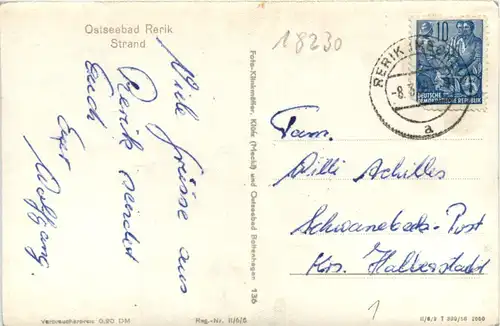 Ostseebad Rerik
Strand
Viele Grüsse aus
Rerik sendet
Euch
Euer
Wolfgang.
Verbraucherpreis 0,20 DM
Reg.-Nr. II/6/6
Foto-Klinkmöller, Klütz (Meckl) und Ostseebad Boltenhagen 136
18230
10
DEUTSCHE
DEMOKRATISCHE REPUBLIK
RERIK (MECKL)
-8.
a
Fam.
Willi Achilles
Schwanebeck-Post
Krs. Halberstadt
1